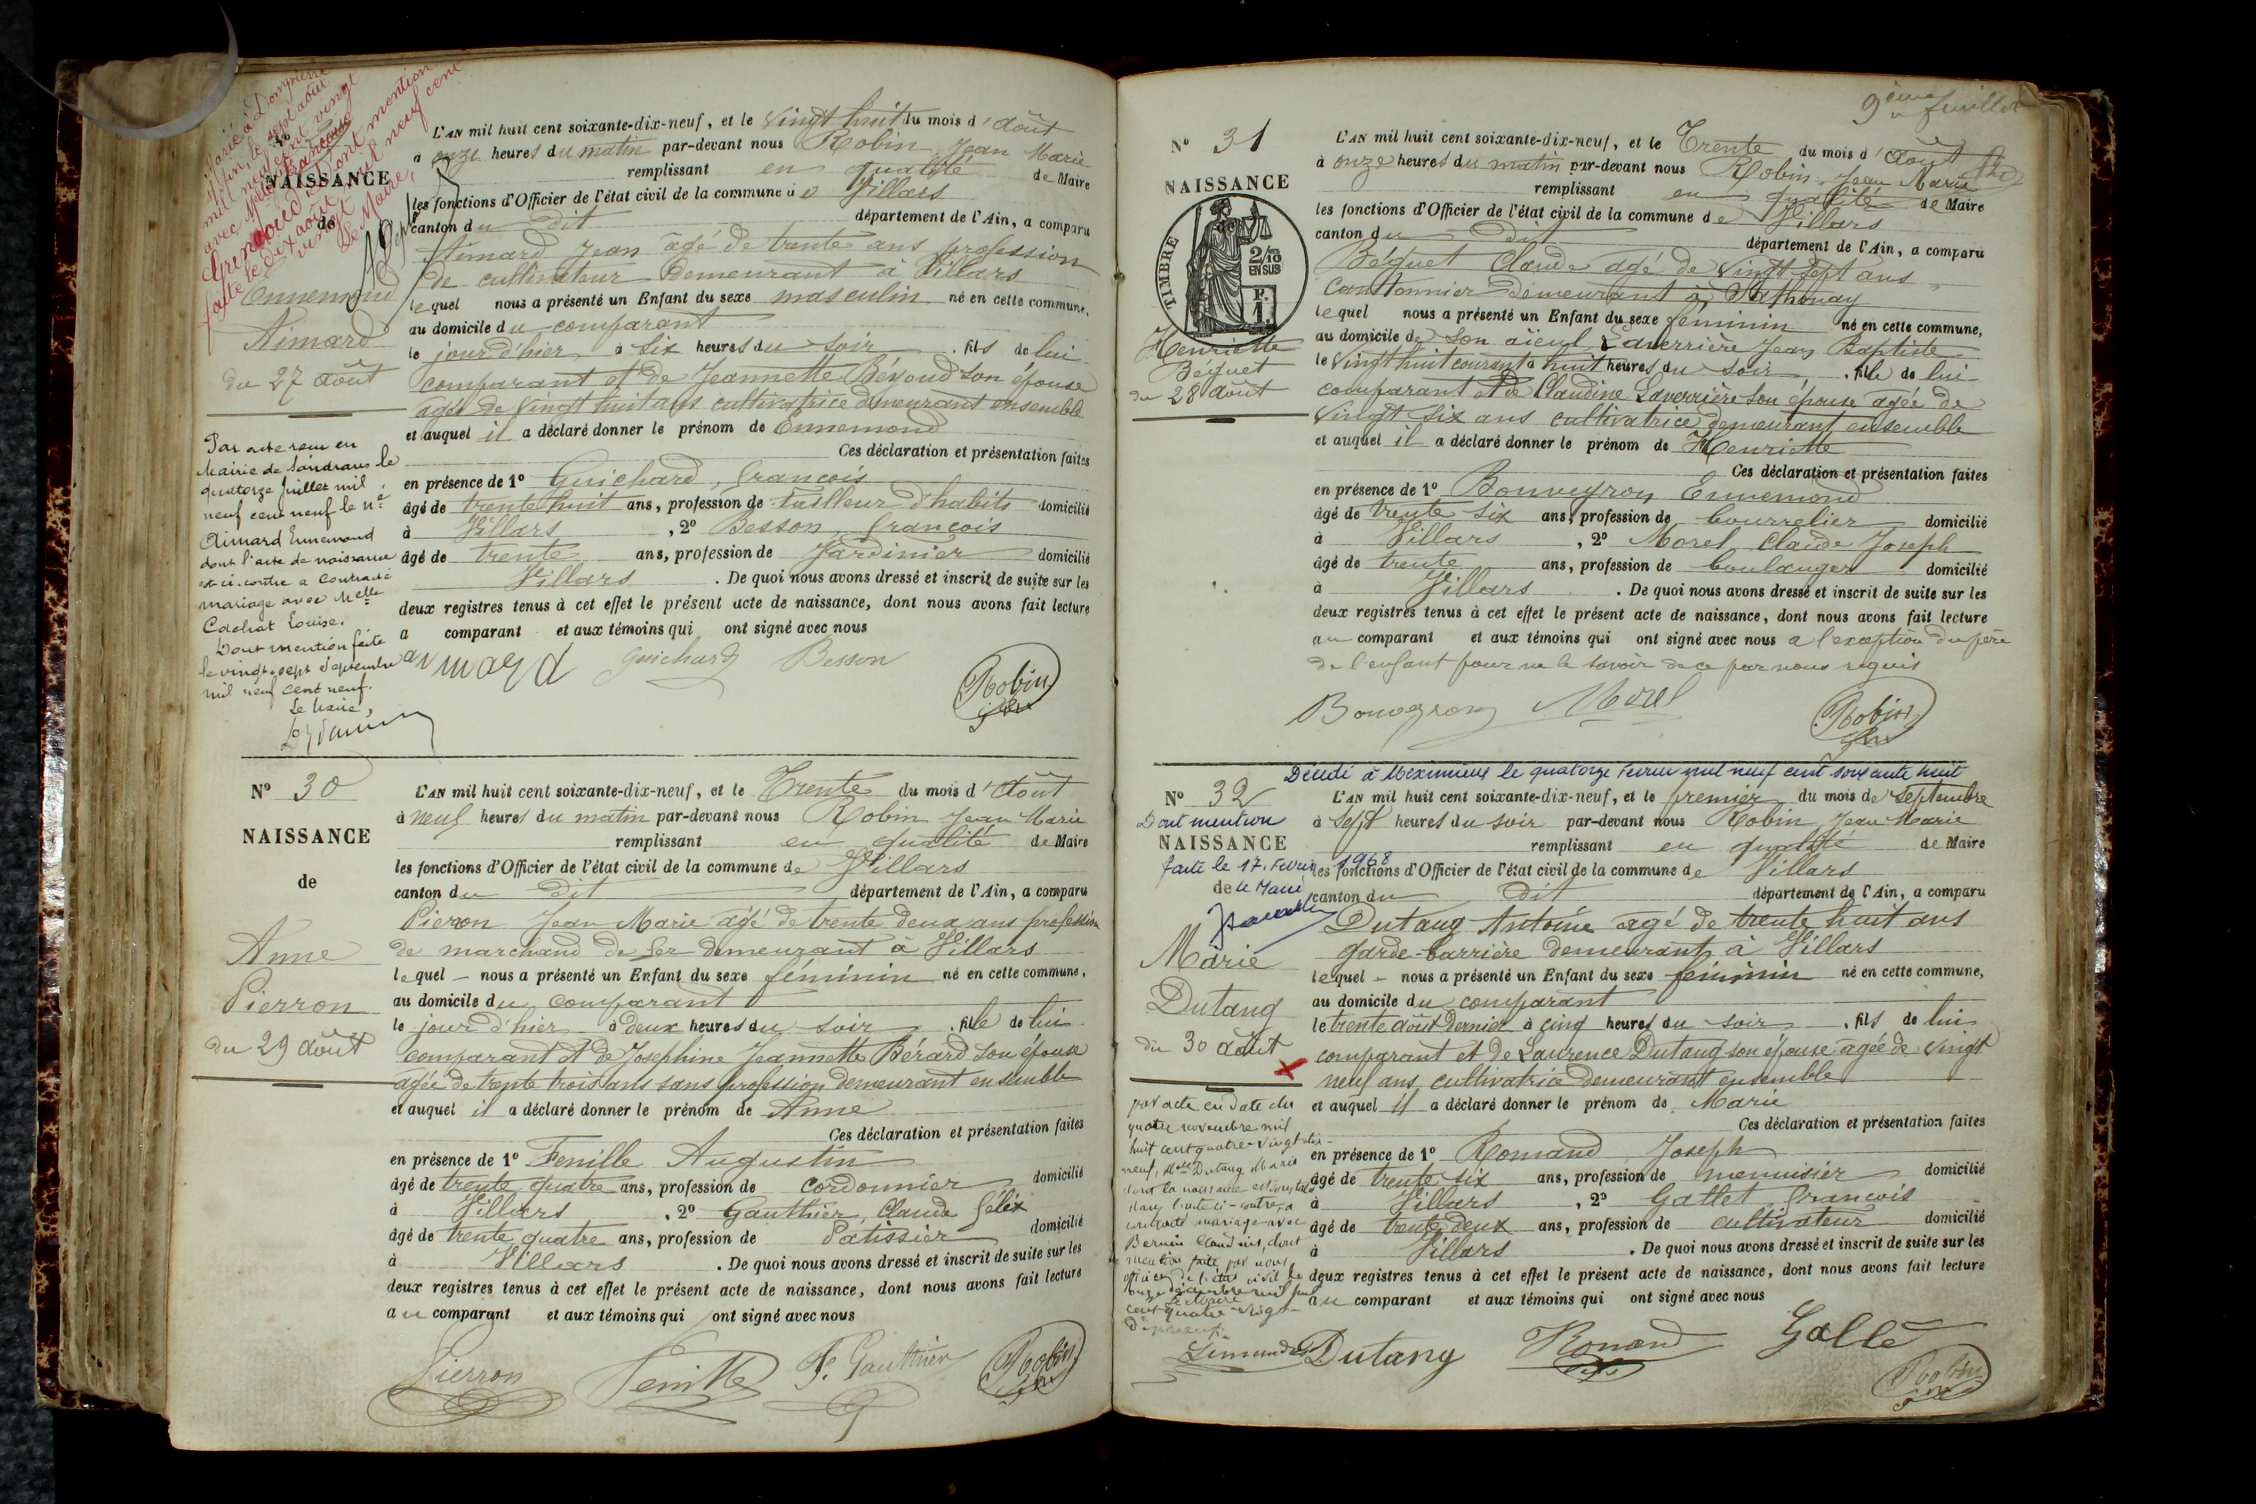 Nº
NAISSANCE
de
Ennemond
Aimard
du 27 août
Par acte reçu en
Mairie de Sandrans le
quatorze juillet mil
neuf cent neuf le né
Aimard Ennemond
dont l'acte de naissance
est ci-contre a contracté
mariage avec Melle
Cachat Louise.
Dont mention faite
le vingt-sept septembre
mil neuf cent neuf.
Le Maire,
L'AN mil huit cent soixante-dix-neuf, et le vingt huit du mois d'août
à onze heures du matin par-devant nous Robin Jean Marie
remplissant en qualité de Maire
les fonctions d'Officier de l'état civil de la commune de Villars
canton du dit département de l'Ain, a comparu
Aimard Jean âgé de trente ans profession
de cultivateur demeurant à Villars
lequel nous a présenté un Enfant du sexe masculin né en cette commune,
au domicile du comparant
le jour d'hier à six heures du soir . fils de lui
comparant et de Jeannette Bévoud son épouse
agée de vingt huit ans cultivatrice demeurant ensemble
et auquel il a déclaré donner le prénom de Ennemond
Ces déclaration et présentation faites
en présence de 1º Guichard, François
âgé de trente huit ans, profession de tailleur d'habits domicilié
à Villars , 2º Besson François
âgé de trente ans, profession de Jardinier domicilié
Villars . De quoi nous avons dressé et inscrit de suite sur les
deux registres tenus à cet effet le présent acte de naissance, dont nous avons fait lecture
a comparant et aux témoins qui ont signé avec nous
aimard Guichard Besson Robin
Nº 30
NAISSANCE
de
Anne
Pierron
du 29 août
L'AN mil huit cent soixante-dix-neuf, et le Trente du mois d'Août
à neuf heures du matin par-devant nous Robin Jean Marie
remplissant en qualité de Maire
les fonctions d'Officier de l'état civil de la commune de Villars
canton du dit département de l'Ain, a comparu
Pierron Jean Marie âgé de trente deux ans profession
de marchand de fer demeurant à Villars
lequel nous a présenté un Enfant du sexe féminin né en cette commune,
au domicile du comparant
le jour d'hier à deux heures du soir . fille de lui
comparant et de Josephine Jeannette Bérard son épouse
agée de trente trois ans sans profession demeurant ensemble
et auquel il a déclaré donner le prénom de Anne
Ces déclaration et présentation faites
en présence de 1º Fenille Augustin
âgé de trente quatre ans, profession de cordonnier domicilié
à Villars , 2º Gauthier, Claude Félix
âgé de trente quatre ans, profession de Patissier domicilié
à Villars . De quoi nous avons dressé et inscrit de suite sur les
deux registres tenus à cet effet le présent acte de naissance, dont nous avons fait lecture
au comparant et aux témoins qui ont signé avec nous
Pierron Fenille F. Gauthier Robin
9ème feuillet
Nº 31
NAISSANCE
TIMBRE
2/10
EN SUS
F.
1.
Henriette
Béguet
du 28 août
L'AN mil huit cent soixante-dix-neuf, et le Trente du mois d'Août
à onze heures du matin par-devant nous Robin, Jean Marie
remplissant en qualité de Maire
les fonctions d'Officier de l'état civil de la commune de Villars
canton du dit département de l'Ain, a comparu
Béguet Claude agé de vingt sept ans
Cantonnier demeurant à Sathonay
lequel nous a présenté un Enfant du sexe féminin né en cette commune,
au domicile de son aïeul Laverrière Jean Baptiste
le vingt huit courant à huit heures du soir . fille de lui
comparant et de Claudine Laverrière son épouse agée de
vingt six ans cultivatrice demeurant ensemble
et auquel il a déclaré donner le prénom de Henriette
Ces déclaration et présentation faites
en présence de 1º Bouveyron Ennemond
âgé de trente six ans, profession de bourrelier domicilié
à Villars , 2º Morel Claude Joseph
âgé de trente ans, profession de boulanger domicilié
à Villars . De quoi nous avons dressé et inscrit de suite sur les
deux registres tenus à cet effet le présent acte de naissance, dont nous avons fait lecture
au comparant et aux témoins qui ont signé avec nous a l'exception du père
de l'enfant pour ne le savoir de ce par nous requis
Bouveyron Morel Robin
Décédé à Meximieux le quatorze Février mil neuf cent soixante huit
Nº 32
Dont mention
NAISSANCE
faite le 17. Février 1968
de le Maire
Marie
Dutang
du 30 août
par acte en date du
quatre novembre mil
huit cent quatre-vingt dix-
neuf, Melle Dutang Marie
dont la naissance est constatée
dans l'acte ci-contre, a
contracté mariage avec
Bernin Claudius, dont
mention faite par nous
officier de l'état civil le
onze décembre mil huit
cent quatre-vingt
L'AN mil huit cent soixante-dix-neuf, et le premier du mois de Septembre
à Sept heures du soir par-devant nous Robin, Jean Marie
remplissant en qualité de Maire
les fonctions d'Officier de l'état civil de la commune de Villars
canton du dit département de l'Ain, a comparu
Dutang Antoine agé de trente huit ans
garde-barrière demeurant à Villars
lequel nous a présenté un Enfant du sexe féminin né en cette commune,
au domicile du comparant
le trente août dernier à cinq heures du soir . fils de lui
comparant et de Laurence Dutang son épouse agée de vingt
neuf ans cultivatrice demeurant ensemble
et auquel il a déclaré donner le prénom de Marie
Ces déclaration et présentation faites
en présence de 1º Romand Joseph
âgé de trente six ans, profession de menuisier domicilié
à Villars , 2º Gallet François
âgé de trente deux ans, profession de cultivateur domicilié
à Villars . De quoi nous avons dressé et inscrit de suite sur les
deux registres tenus à cet effet le présent acte de naissance, dont nous avons fait lecture
au comparant et aux témoins qui ont signé avec nous
Dutang Romand Gallé Robin